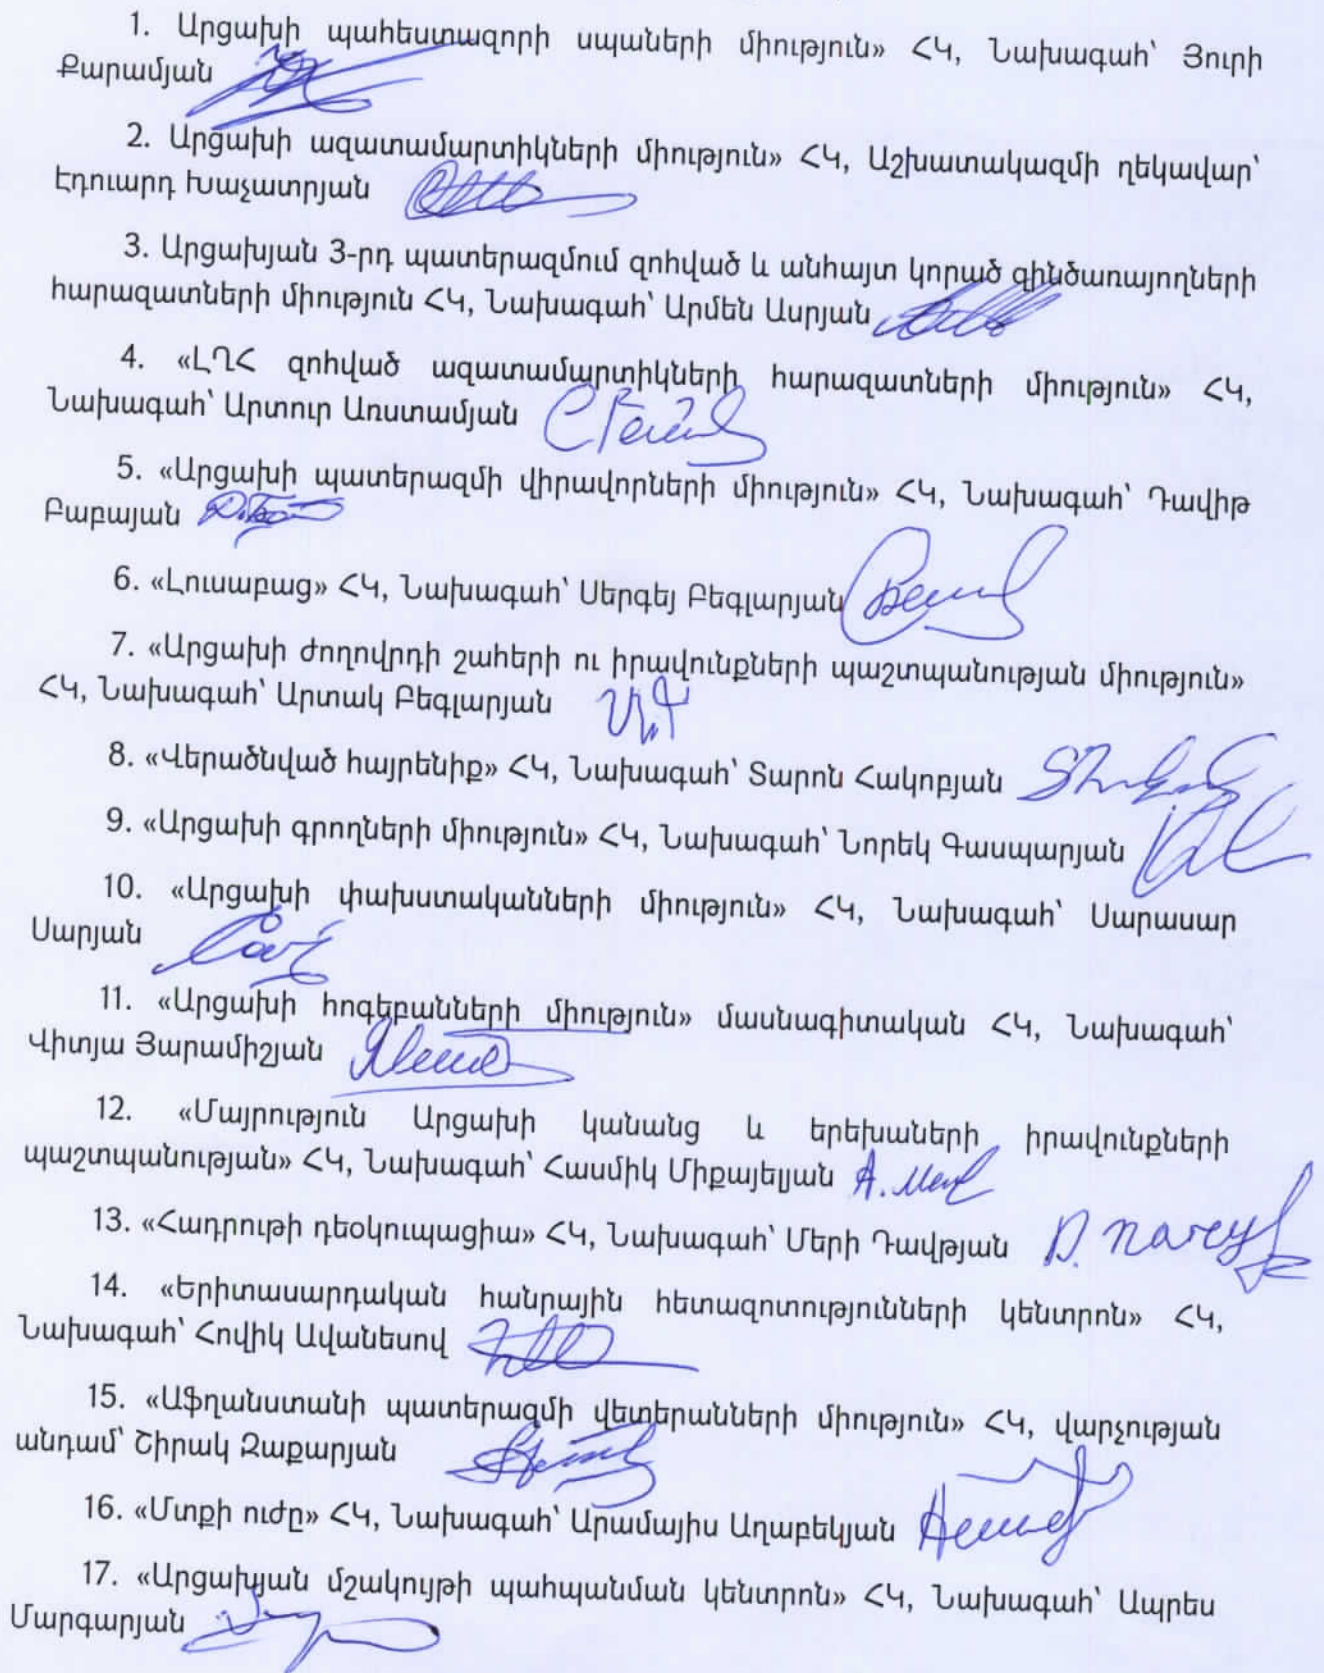 1. Արցախի պահեստազորի սպաների միություն» ՀԿ, Նախագահ՝ Յուրի
Քարամյան
2. Արցախի ազատամարտիկների միություն» ՀԿ, Աշխատակազմի ղեկավար՝
Էդուարդ Խաչատրյան
3. Արցախյան 3-րդ պատերազմում զոհված և անհայտ կորած զինծառայողների
հարազատների միություն ՀԿ, Նախագահ՝ Արմեն Ասրյան
4. «ԼՂՀ զոհված ազատամարտիկների հարազատների միություն» ՀԿ,
Նախագահ՝ Արտուր Առստամյան
5. «Արցախի պատերազմի վիրավորների միություն» ՀԿ, Նախագահ՝ Դավիթ
Բաբայան
6. «Լուսաբաց» ՀԿ, Նախագահ՝ Սերգեյ Բեգլարյան
7. «Արցախի ժողովրդի շահերի ու իրավունքների պաշտպանության միություն»
ՀԿ, Նախագահ՝ Արտակ Բեգլարյան
8. «Վերածնված հայրենիք» ՀԿ, Նախագահ՝ Տարոն Հակոբյան
9. «Արցախի գրողների միություն» ՀԿ, Նախագահ՝ Նորեկ Գասպարյան
10. «Արցախի փախստականների միություն» ՀԿ, Նախագահ՝ Սարասար
Սարյան
11. «Արցախի հոգեբանների միություն» մասնագիտական ՀԿ, Նախագահ՝
Վիտյա Յարամիշյան
12. «Մայրություն Արցախի կանանց և երեխաների իրավունքների
պաշտպանության» ՀԿ, Նախագահ՝ Հասմիկ Միքայելյան
13. «Հադրութի դեօկուպացիա» ՀԿ, Նախագահ՝ Մերի Դավթյան
14. «Երիտասարդական հանրային հետազոտությունների կենտրոն» ՀԿ,
Նախագահ՝ Հովիկ Ավանեսով
15. «Աֆղանստանի պատերազմի վետերանների միություն» ՀԿ, վարչության
անդամ՝ Շիրակ Զաքարյան
16. «Մտքի ուժը» ՀԿ, Նախագահ՝ Արամայիս Աղաբեկյան
17. «Արցախյան մշակույթի պահպանման կենտրոն» ՀԿ, Նախագահ՝ Ապրես
Մարգարյան